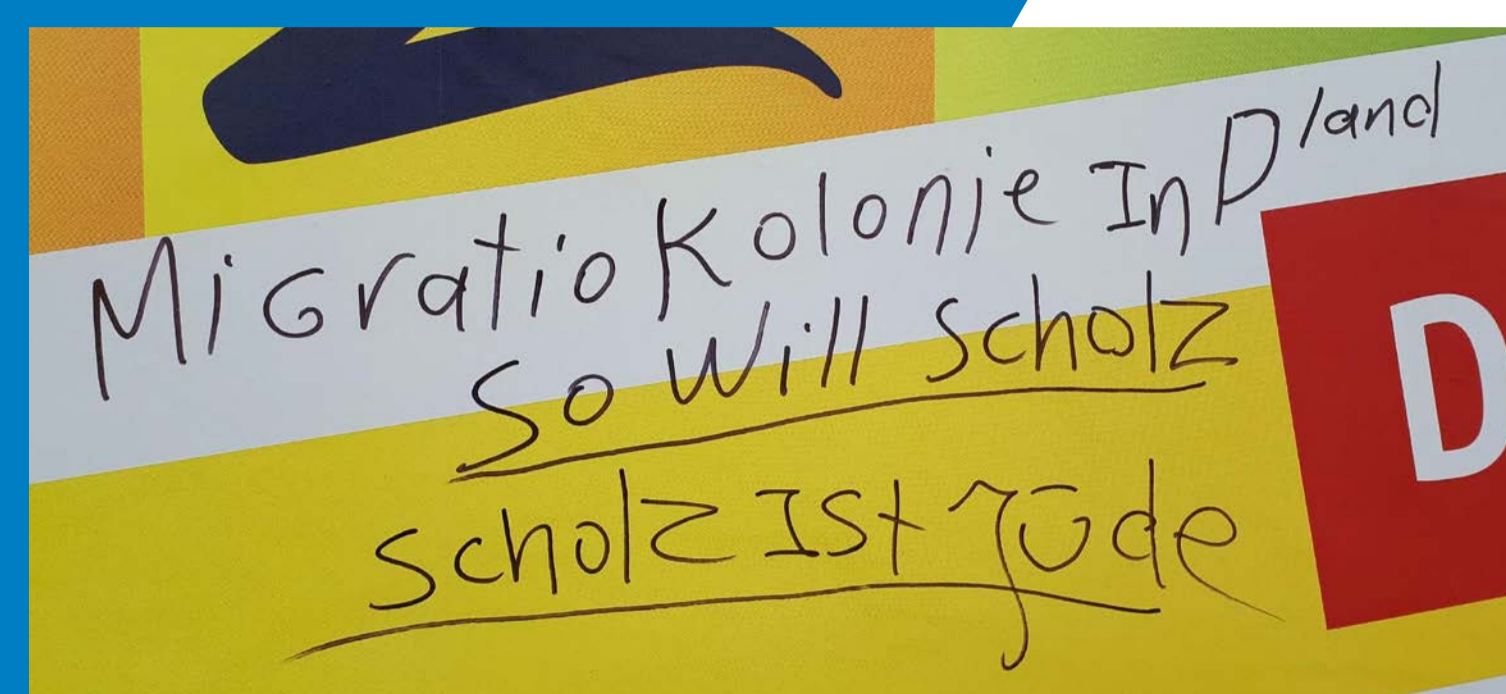 MiGratio Kolonie In Dland
So Will Scholz
Scholz Ist Jüde
D